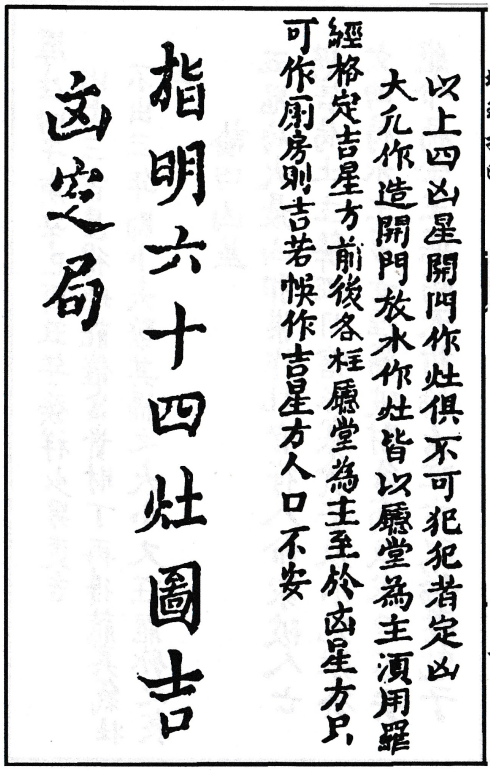 以上四凶星開門作灶俱不可犯犯者定凶
大凡作造開門放水作灶皆以廳堂為主須用羅
經格定吉星方前後各柱廳堂為主至於凶星方只
可作厨房則吉若悞作吉星方人口不安
指明六十四灶圖吉
凶定局